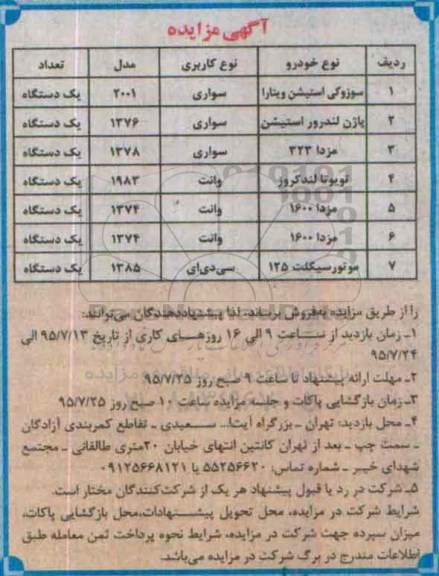 آگهی مزایده
ردیف نوع خودرو نوع کاربری مدل تعداد
۱ سوزوکی استیشن ویتارا سواری ۲۰۰۱ یک دستگاه
۲ پاژن لندرور استیشن سواری ۱۳۷۶ یک دستگاه
۳ مزدا ۳۲۳ سواری ۱۳۷۸ یک دستگاه
۴ تویوتا لندکروز وانت ۱۹۸۳ یک دستگاه
۵ مزدا ۱۶۰۰ وانت ۱۳۷۴ یک دستگاه
۶ مزدا ۱۶۰۰ وانت ۱۳۷۴ یک دستگاه
۷ موتورسیگلت ۱۲۵ سی‌دی‌ای ۱۳۸۵ یک دستگاه
را از طریق مزایده بفروش برساند. لذا پیشنهاددهندگان می‌توانند:
۱ـ زمان بازدید از ساعت ۹ الی ۱۶ روزهای کاری از تاریخ ۹۵/۷/۱۳ الی
۹۵/۷/۲۴
۲ـ مهلت ارائه پیشنهاد تا ساعت ۹ صبح روز ۹۵/۷/۲۵
۳ـ زمان بازگشایی پاکات و جلسه مزایده ساعت ۱۰ صبح روز ۹۵/۷/۲۵
۴ـ محل بازدید: تهران ـ بزرگراه آیت‌ا... سعیدی ـ تقاطع کمربندی آزادگان
ـ سمت چپ ـ بعد از تهران کانتین انتهای خیابان ۲۰متری طالقانی ـ مجتمع
شهدای خیبر ـ شماره تماس: ۵۵۲۵۶۶۲۰ یا ۰۹۱۲۵۶۶۸۱۲۱
۵ـ شرکت در رد یا قبول پیشنهاد هر یک از شرکت‌کنندگان مختار است.
شرایط شرکت در مزایده، محل تحویل پیشنهادات،محل بازگشایی پاکات،
میزان سپرده جهت شرکت در مزایده، شرایط نحوه پرداخت ثمن معامله طبق
اطلاعات مندرج در برگ شرکت در مزایده می‌باشد.